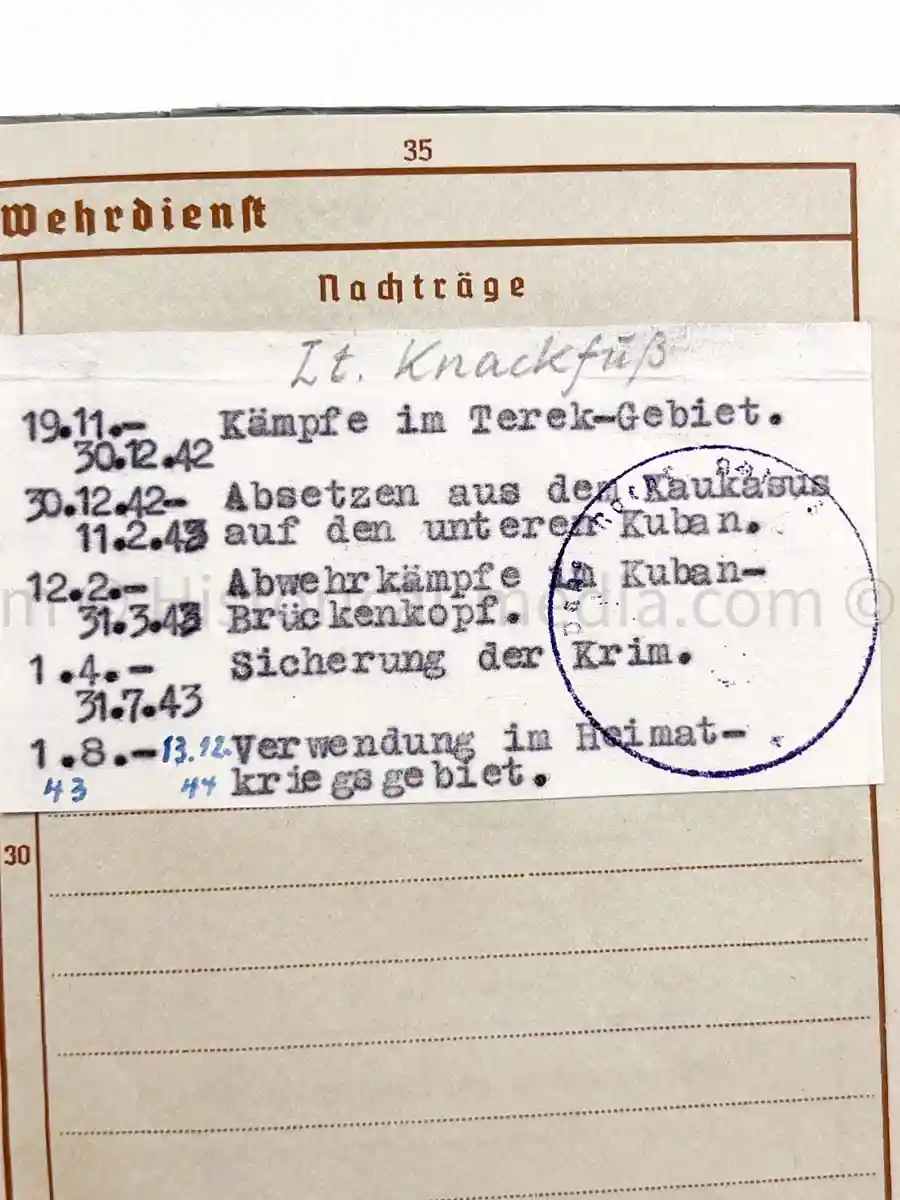 35
Wehrdienst
Nachträge
Lt. Knackfuß
19.11.- Kämpfe im Terek-Gebiet.
30.12.42
30.12.42- Absetzen aus dem Kaukasus
11.2.43 auf den unteren Kuban.
12.2.- Abwehrkämpfe im Kuban-
31.3.43 Brückenkopf.
1.4.- Sicherung der Krim.
31.7.43
1.8.-13.12. Verwendung im Heimat-
43 44 kriegsgebiet.
30